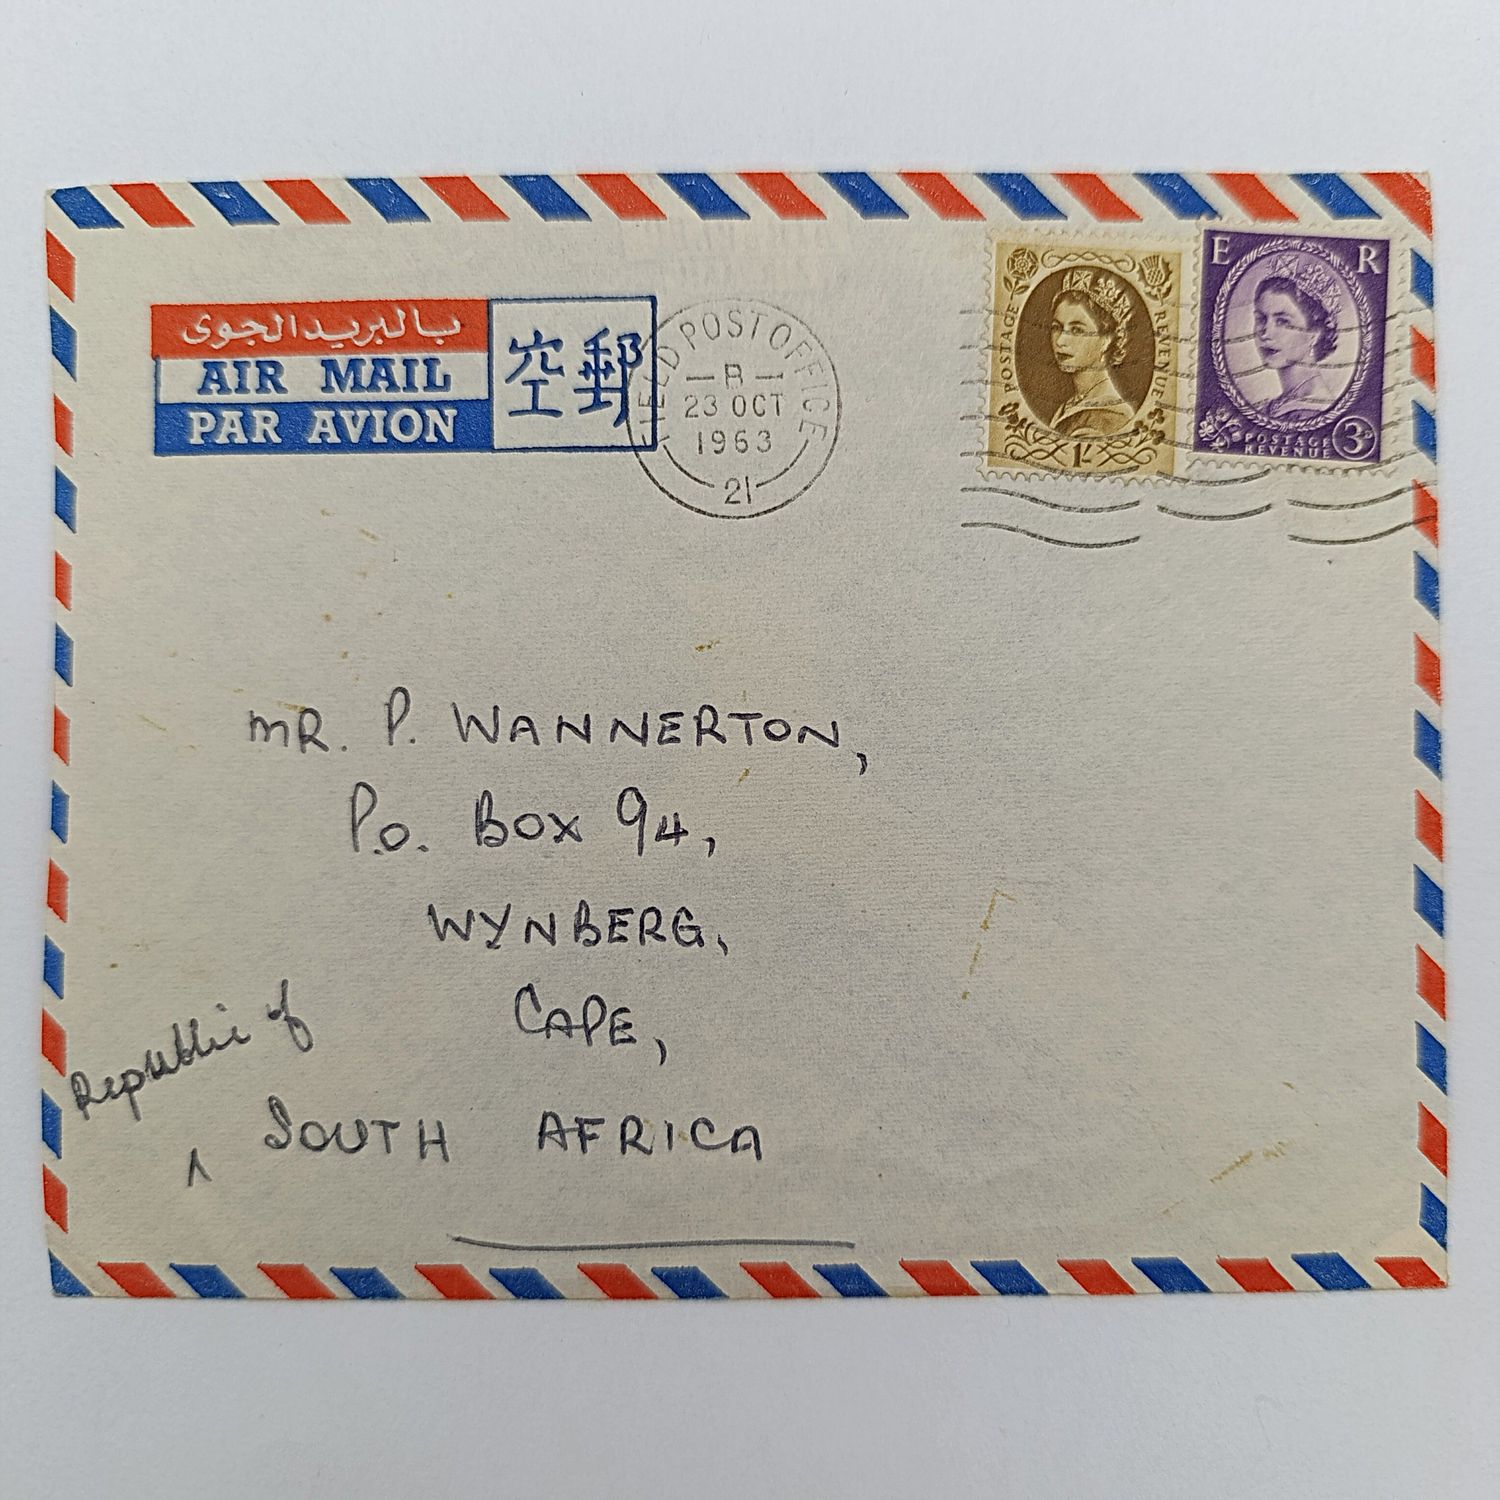 بالبريد الجوى
AIR MAIL
PAR AVION
空郵
FIELD POST OFFICE
B
23 OCT
1963
21
POSTAGE
REVENUE
1/-
E R
POSTAGE
REVENUE
3D
MR. P. WANNERTON,
P.O. BOX 94,
WYNBERG,
CAPE,
Republic of
SOUTH AFRICA